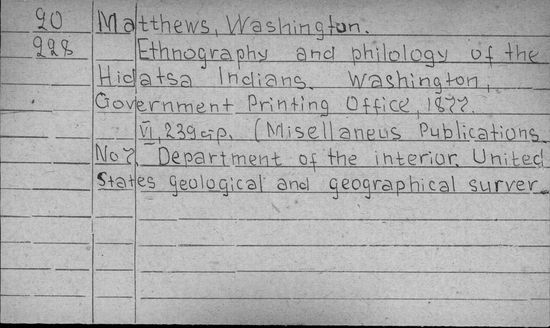 20 Matthews, Washington.
228 Ethnography and philology of the
Hidatsa Indians. Washington,
Government Printing Office, 1877.
VI, 239 p. (Misellaneus Publications
No 7. Department of the interior. United
States geological and geographical surver.